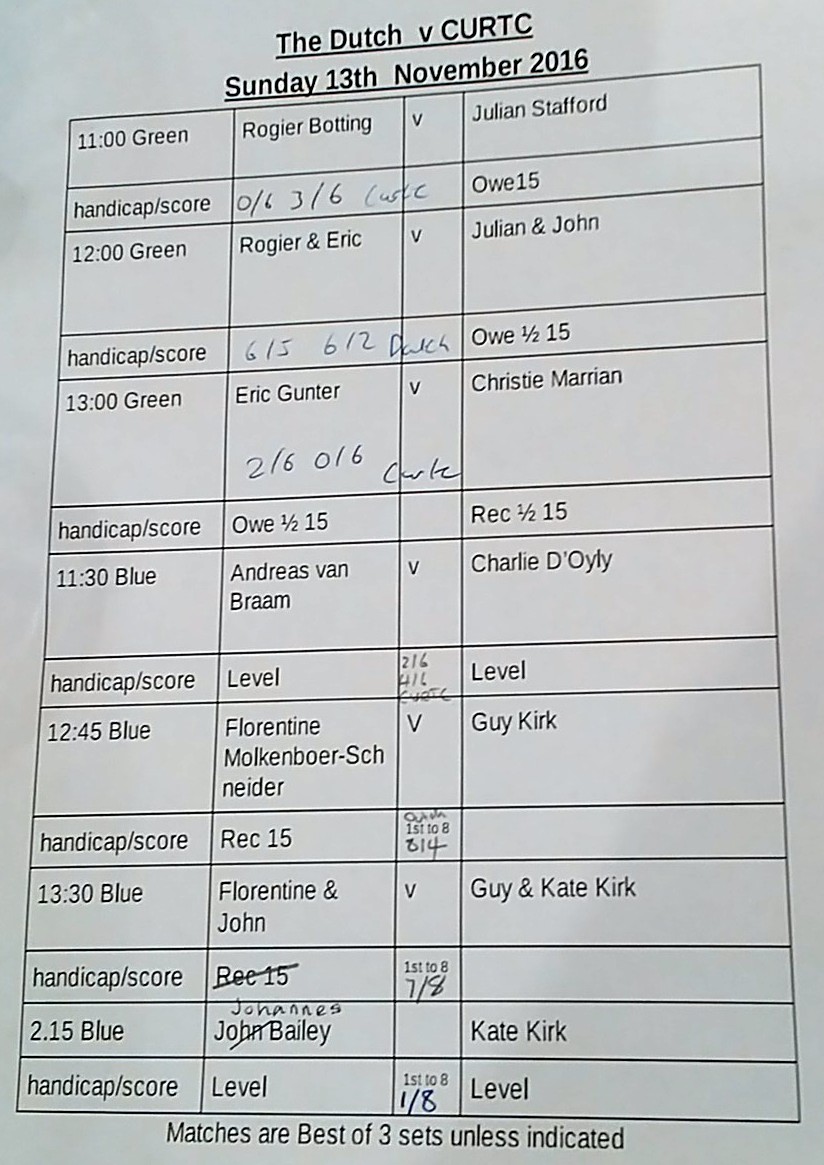 The Dutch v CURTC
Sunday 13th November 2016
11:00 Green Rogier Botting v Julian Stafford
handicap/score 0/6 3/6 Curtc Owe15
12:00 Green Rogier & Eric v Julian & John
handicap/score 6/5 6/2 Dutch Owe ½ 15
13:00 Green Eric Gunter v Christie Marrian
2/6 0/6 Curtc
handicap/score Owe ½ 15 Rec ½ 15
11:30 Blue Andreas van v Charlie D'Oyly
Braam
handicap/score Level 2/6 Level
4/6
CURTC
12:45 Blue Florentine V Guy Kirk
Molkenboer-Sch
neider
Dutch
handicap/score Rec 15 1st to 8
8/4
13:30 Blue Florentine & v Guy & Kate Kirk
John
handicap/score Rec 15 1st to 8
7/8
Johannes
2.15 Blue John Bailey Kate Kirk
handicap/score Level 1st to 8 Level
1/8
Matches are Best of 3 sets unless indicated